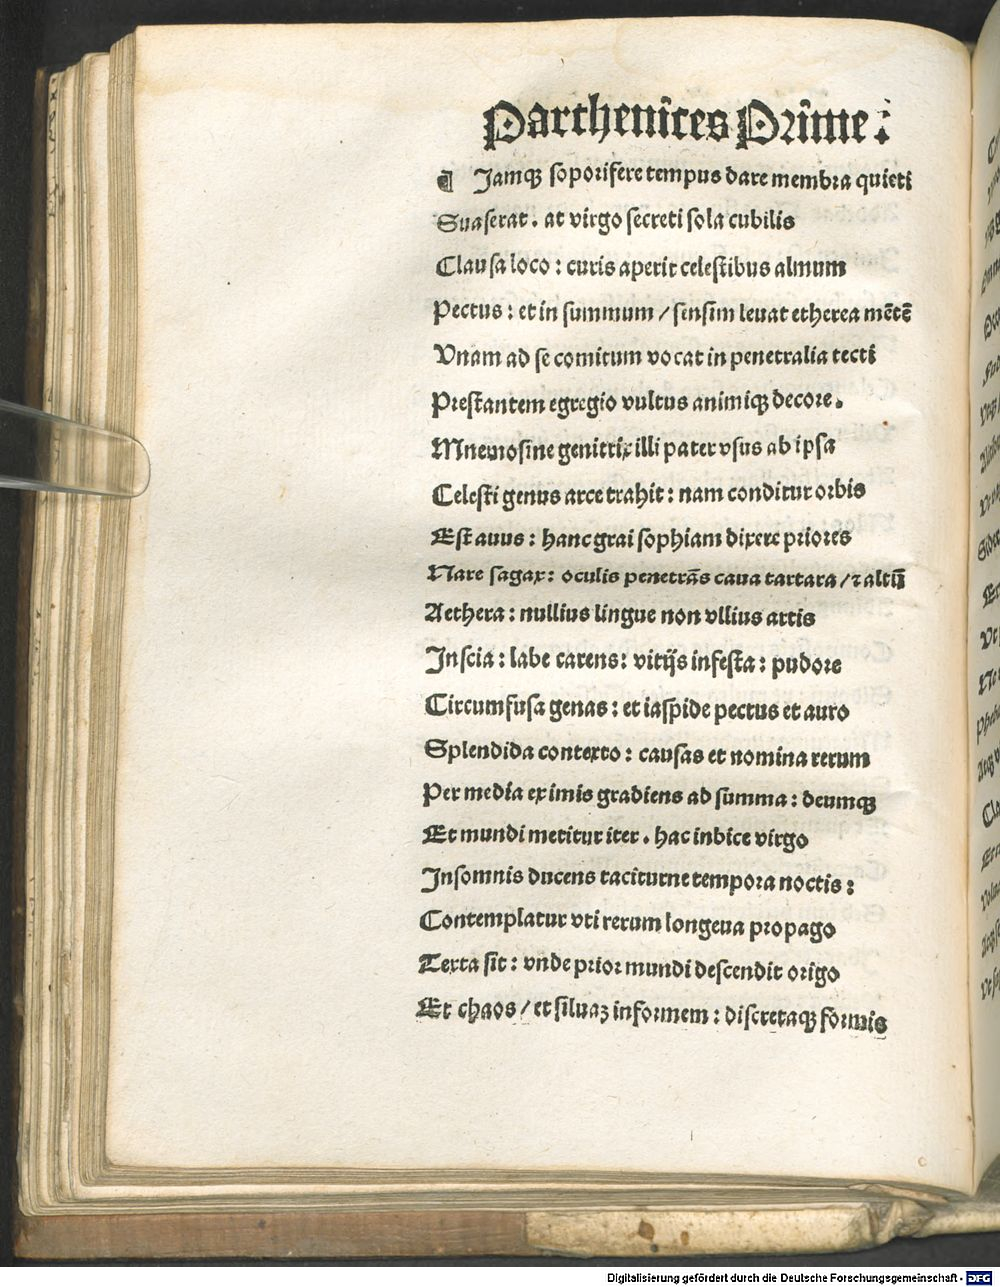 Parthenices Prime:
¶ Jamqꝫ soporifere tempus dare membra quieti
Suaserat. at virgo secreti sola cubilis
Clausa loco: curis aperit celestibus almum
Pectus: et in summum / sensim leuat etherea mētē
Vnam ad se comitum vocat in penetralia tecti
Prestantem egregio vultus animiqꝫ decore.
Mnemosine genitrix illi pater vsus ab ipsa
Celesti genus arce trahit: nam conditur orbis
Est auus: hanc grai sophiam dixere priores
Nare sagax: oculis penetrās caua tartara / ⁊ altū
Aethera: nullius lingue non vllius artis
Inscia: labe carens: vitijs infesta: pudore
Circumfusa genas: et iaspide pectus et auro
Splendida contexto: causas et nomina rerum
Per media ex imis gradiens ad summa: deumqꝫ
Et mundi metitur iter. hac indice virgo
Insomnis ducens taciturne tempora noctis:
Contemplatur vti rerum longeua propago
Texta sit: vnde prior mundi descendit origo
Et chaos / et siluaꝫ informem: discretaqꝫ formis
Digitalisierung gefördert durch die Deutsche Forschungsgemeinschaft - DFG